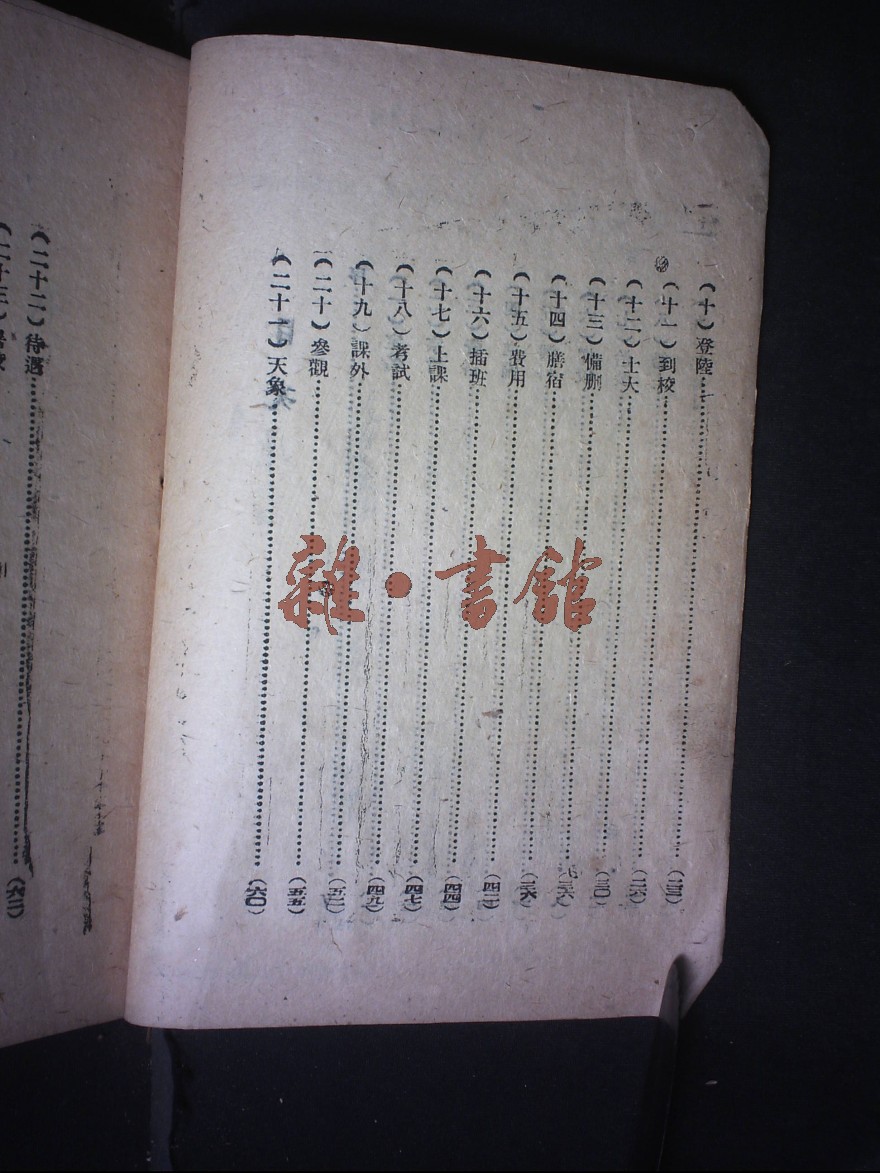 (十)登陸……(二三)
(十一)到校……(二六)
(十二)士大
(十三)備刪
(十四)膳宿
(十五)費用
(十六)插班……(四二)
(十七)上課……(四四)
(十八)考試……(四七)
(十九)課外……(四九)
(二十)參觀……(五五)
(二十一)天象……(六〇)
(二十二)待遇……(六二)
雜·書館